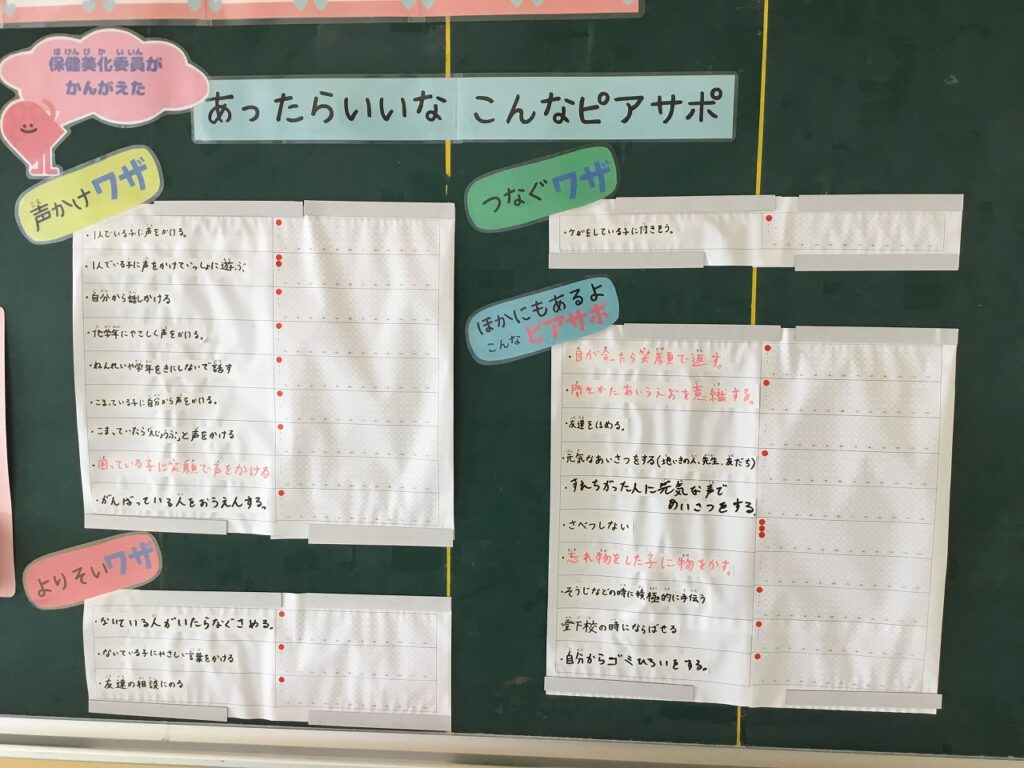 保健美化委員が
かんがえた
あったらいいな こんなピアサポ
声かけワザ
・1人でいる子に声をかける。
・1人でいる子に声をかけていっしょに遊ぶ
・自分から話しかける
・他学年にやさしく声をかける。
・ねんれいや学年をきにしないで話す
・こまっている子に自分から声をかける。
・こまっていたら「大じょうぶ」と声をかける
・困っている子に笑顔で声をかける
・がんばっている人をおうえんする。
よりそいワザ
・ないている人がいたらなぐさめる。
・ないている子にやさしい言葉をかける
・友達の相談にのる
つなぐワザ
・ケガをしている子に付きそう。
ほかにもあるよ
こんなピアサポ
・目が合ったら笑顔で返す。
・聞きかたあいうえおを意識する。
・友達をほめる。
・元気なあいさつをする(地いきの人、先生、友だち)
・すれちがった人に元気な声で
あいさつをする
・さべつしない
・忘れ物をした子に物をかす。
・そうじなどの時に積極的に手伝う
登下校の時にならばせる
・自分からゴミひろいをする。